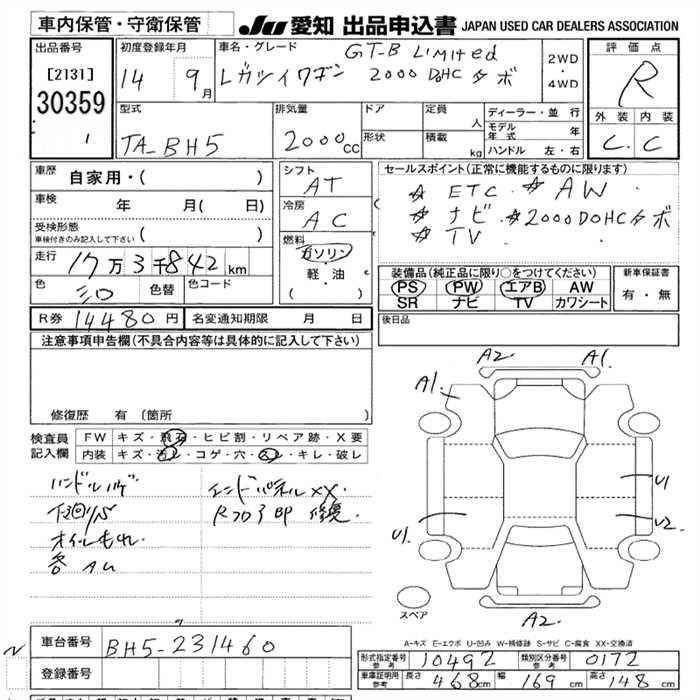 車内保管・守衛保管
JU 愛知 出品申込書 JAPAN USED CAR DEALERS ASSOCIATION
出品番号
[2131]
30359
1
初度登録年月
14 9月
車名・グレード
GT-B Limited
レガシィワゴン 2000 DOHC ターボ
2WD
・
4WD
評価点
R
外装 内装
C. C
型式
TA-BH5
排気量
2000cc
ドア
形状
定員 人
積載 kg
ディーラー・並行
モデル年式 年
ハンドル 左・右
車歴
自家用・( )
車検 年 月( 日)
受検形態
車検付きのみ記入して下さい ( )
走行 17万3千842km
色 シロ 色替 色コード
R券 14480円 名変通知期限 月 日
シフト
AT
冷房
AC
燃料
ガソリン
・
軽・油
( )
セールスポイント(正常に機能するものに限ります)
☆ ETC ☆ AW
☆ ナビ ☆2000DOHCターボ
☆ TV
装備品(純正品に限り〇をつけてください)
PS PW エアB AW
SR ナビ TV カワシート
新車保証書
有・無
後日品
注意事項申告欄(不具合内容等は具体的に記入して下さい)
修復歴 有 (箇所
検査員
記入欄
FW キズ・飛石・ヒビ割・リペア跡・X要
内装 キズ・汚レ・コゲ・穴・スレ・キレ・破レ
ハンドルハゲ
下回りS
オイルもれ
各AU
エンドパネルXX
Rフロア BP 修復
A2. A1.
A1
U1
U1
U2
A2
スペア
A-キズ E-エクボ U-凹み W-補修跡 S-サビ C-腐食 XX-交換済
車台番号 BH5-231460
登録番号
形式指定番号 参考 10492 類別区分番号 参考 0172
車庫証明用 参考 長さ 468cm 幅 169cm 高さ 148cm